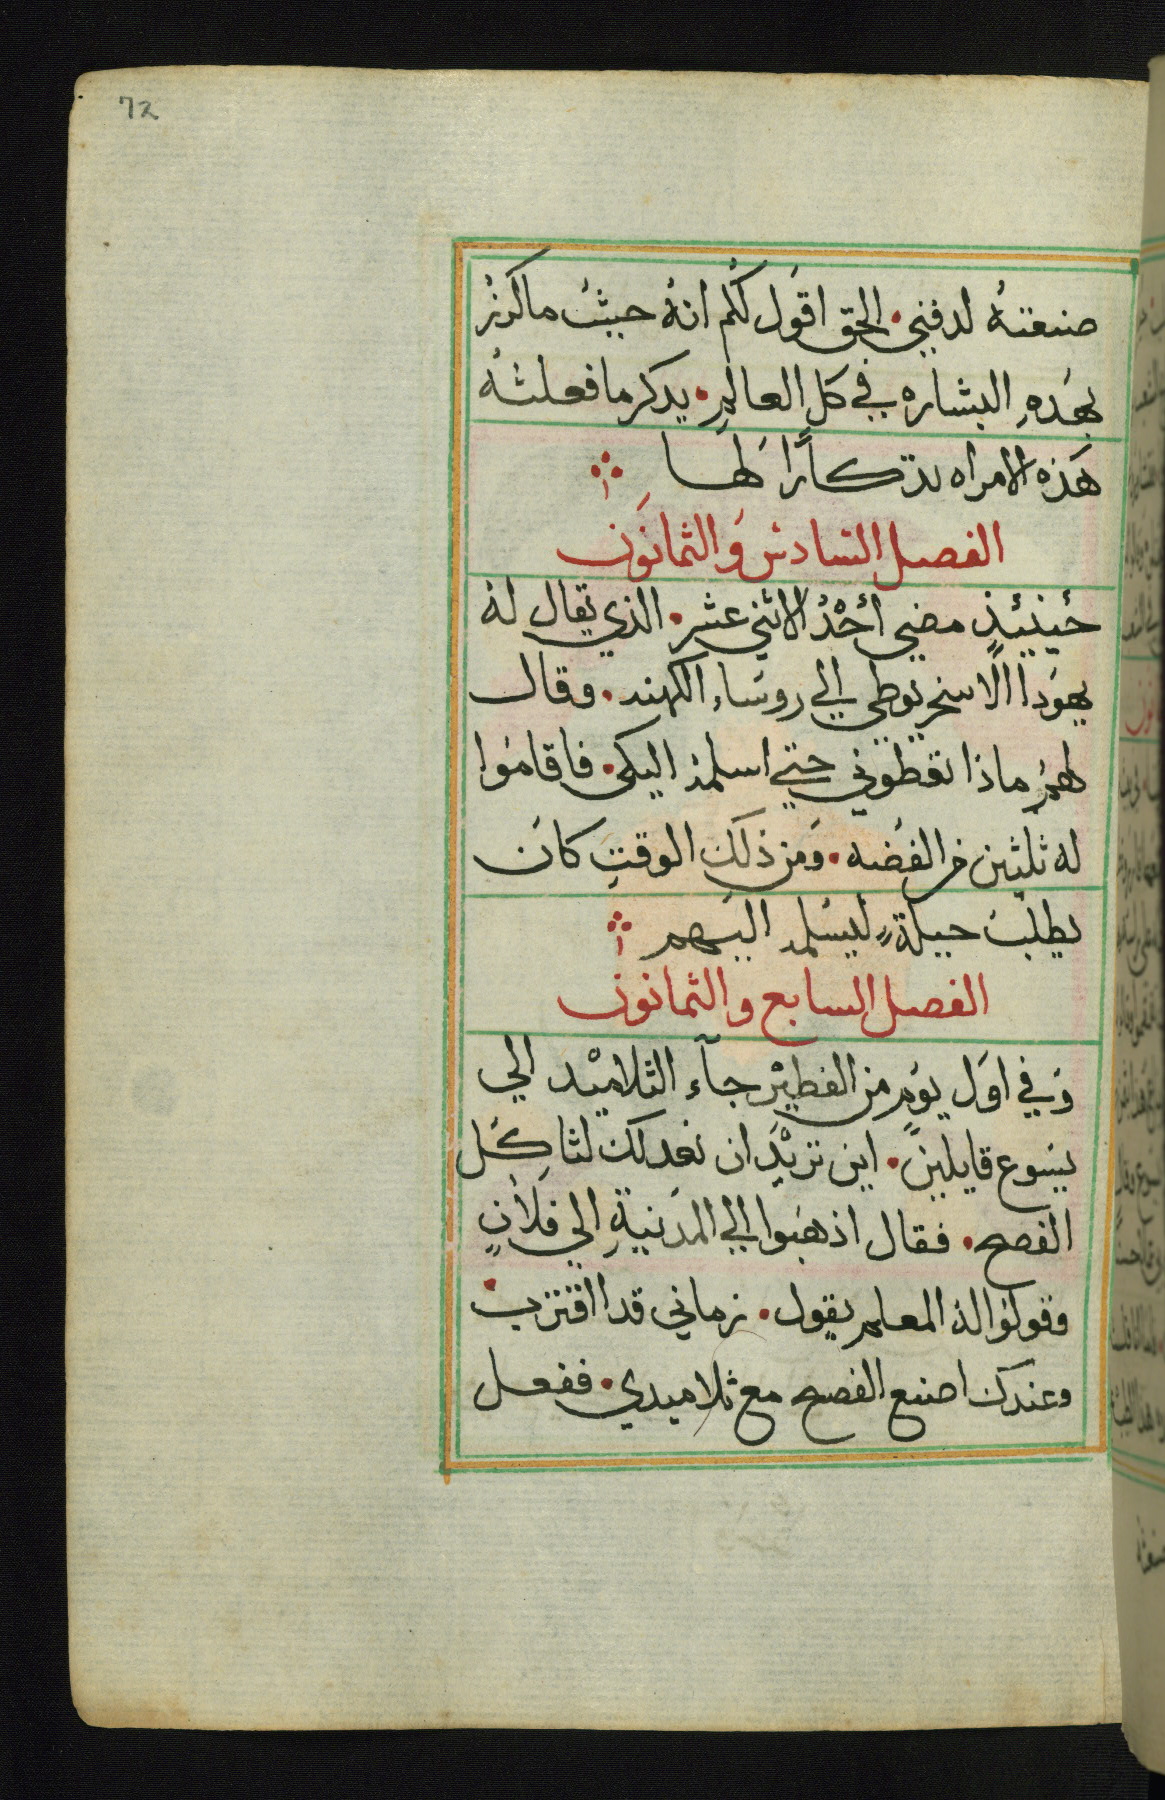 72
صنعته لدفني. الحق اقول لكم انه حيث ما كرز
بهده البشاره في كل العالم. يدكر ما فعلته
هذه الامراه تذكارًا لها
الفصل السادس والثمانون
حينيئذٍ مضي أحد الاثني عشر. الذي يقال له
يهودا الاسخريوطي الي روساء الكهنه. وقال
لهم ماذا تعطوني حتي اسلمه اليكم. فاقاموا
له ثلثين من الفضه. ومن ذلك الوقت كان
يطلب حيلةً ليسلمه اليهم
الفصل السابع والثمانون
وفي اول يوم من الفطير جآء التلاميد الي
يسوع قايلين. اين تريد ان نعد لك لتاكل
الفصح. فقال اذهبوا الي المدنية الي فلانٍ
وقولوا له المعلم يقول. زماني قد اقترب.
وعندك اصنع الفصح مع تلاميدي. ففعل